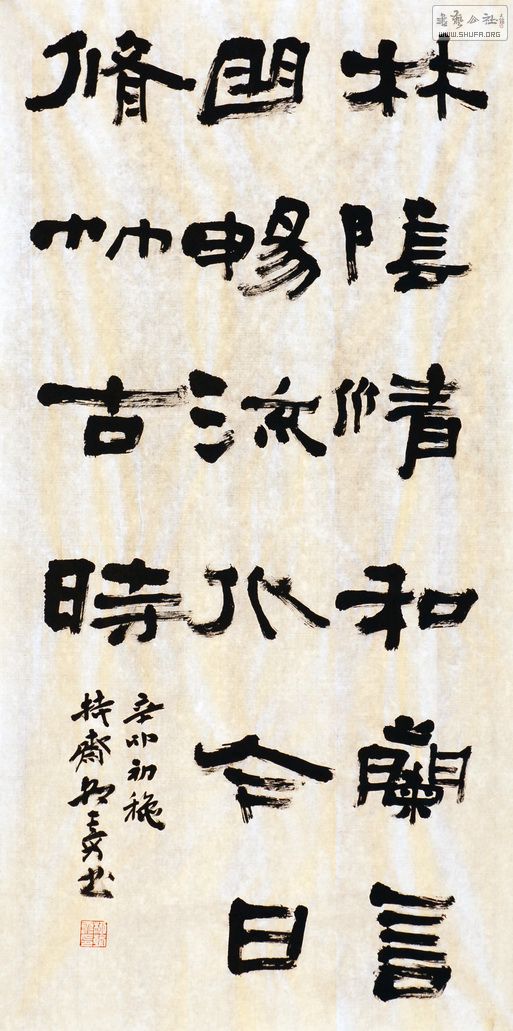 林陰清和蘭言
曲暢流水今日
脩竹古時
辛卯初穐
持齋
書
書藝公社
WWW.SHUFA.ORG